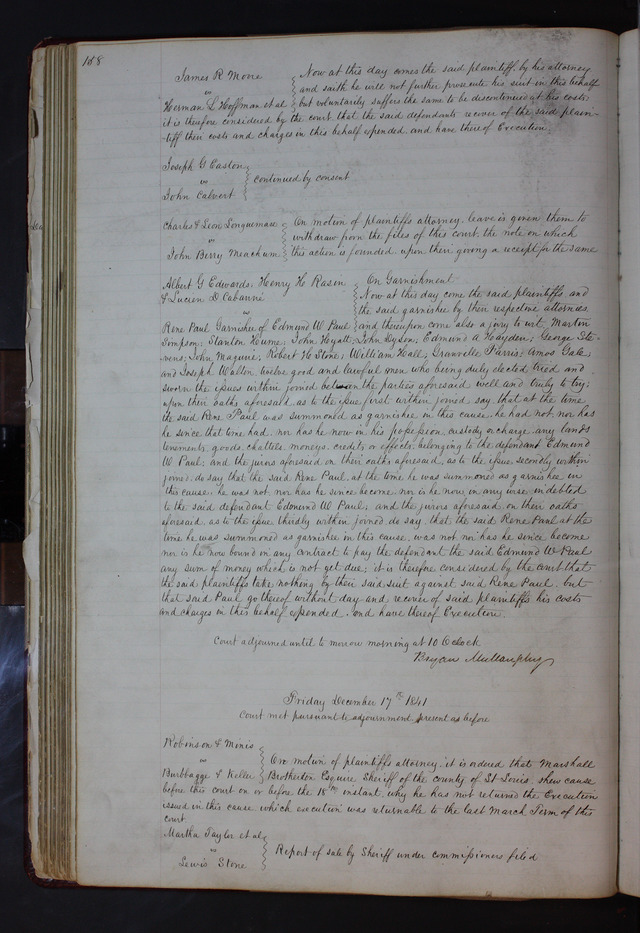 168
James R Moore
vs
Herman L Hoffman et al
Now at this day comes the said plaintiff by his attorney
and saith he will not further prosecute his suit in this behalf
but voluntarily suffers the same to be discontinued at his costs
it is therefore considered by the court that the said defendants recover of the said plain-
tiff their costs and charges in this behalf expended, and have thereof Execution.
Joseph G Easton
vs
John Calvert
Continued by consent
Charles & Leon Songuemare
vs
John Berry Meachum
On motion of plaintiffs attorney, leave is given them to
withdraw from the files of this court, the note on which
this action is founded upon their giving a receipt for the same
Albert G Edwards, Henry H Rasen
& Lucien D Cabanne
vs
Rene Paul Garnishee of Edmund W Paul
On Garnishment
Now at this day come the said plaintiffs and
the said garnishee by their respective attornies
and thereupon come also a jury to wit, Marton
Simpson; Stanton Hume; John Hyatt; John Dyson; Edmund A Hayden; George Ste-
vens; John Maguire; Robert H Stone; William Hall; Granville Farris; Amos Gale;
and Joseph Walton, twelve good and lawful men who being duly elected tried and
sworn the issues within joined between the parties aforesaid well and truly to try;
upon their oaths aforesaid as to the issue first within joined, say, that at the time
the said Rene Paul was summoned as garnishee in this cause, he had not, nor has
he since that time had, nor has he now in his possession, custody or charge, any lands
tenements, goods, chattels, moneys, credits or effects, belonging to the defendant Edmund
W Paul; and the jurors aforesaid on their oaths aforesaid, as to the issue secondly within
joined, do say that the said Rene Paul, at the time he was summoned as garnishee in
this cause, he was not, nor has he since become, nor is he now in any wise indebted
to the said defendant Edmund W Paul; and the jurors aforesaid, on their oaths
aforesaid, as to the issue thirdly within joined, do say, that the said Rene Paul at the
time he was summoned as garnishee in this cause, was not, nor has he since become
nor is he now bound in any contract to pay the defendant the said Edmund W Paul
any sum of money which is not yet due; it is therefore considered by the court that
the said plaintiffs take nothing by their said suit against said Rene Paul, but
that said Paul go thereof without day and recover of said plaintiffs his costs
and charges in this behalf expended, and have thereof Execution.
Court adjourned until to morrow morning at 10 Oclock
Bryan Mullanphy
Friday December 17th 1841
Court met pursuant to adjournment, present as before
Robinson & Minis
vs
Burbbagge & Keller
On motion of plaintiffs attorney, it is ordered that Marshall
Brotherton Esquire Sheriff of the county of St Louis, shew cause
before this court on or before the 18th instant, why he has not returned the Execution
issued in this cause which execution was returnable to the last March Term of this
court
Martha Taylor et al
vs
Lewis Stone
Report of sale by Sheriff under commissioners filed